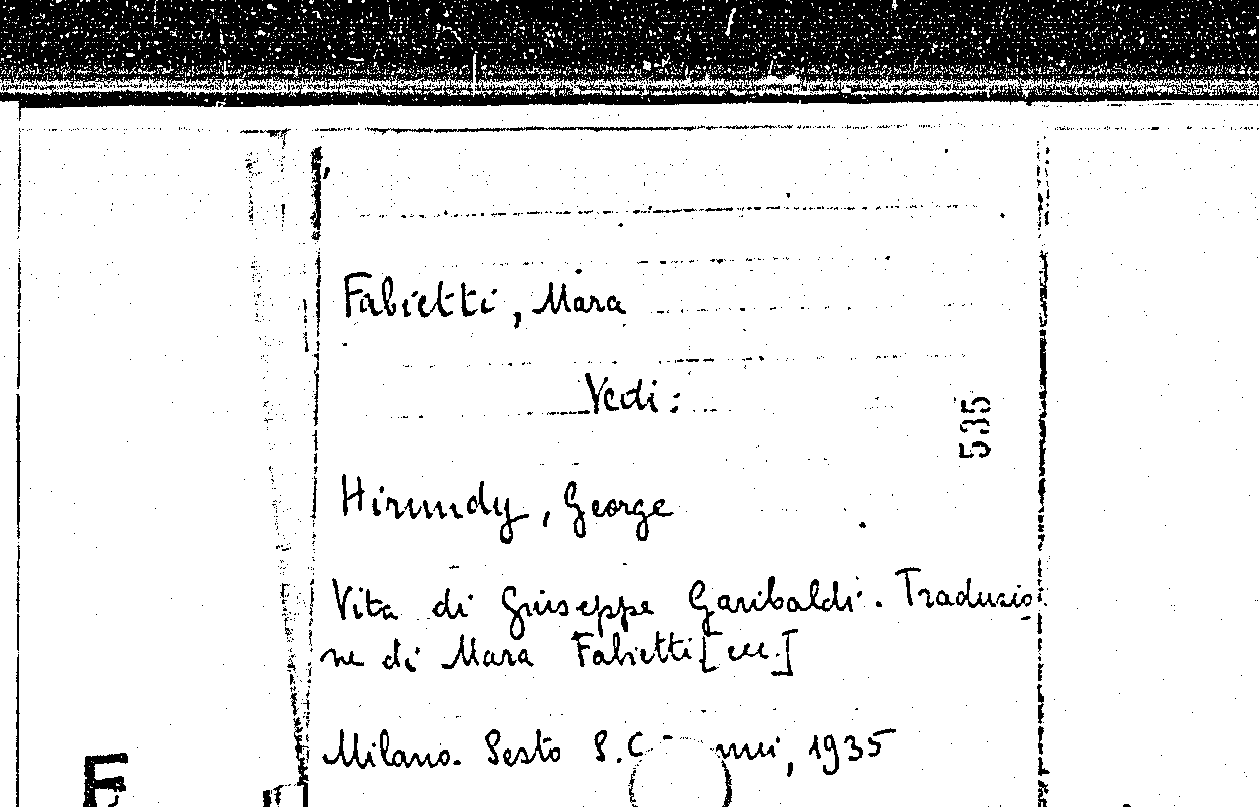 Fabietti, Mara
Vedi:
535
Hirundy, George
Vita di Giuseppe Garibaldi. Traduzio-
ne di Mara Fabietti [ecc.]
Milano. Sesto S.
1935
E